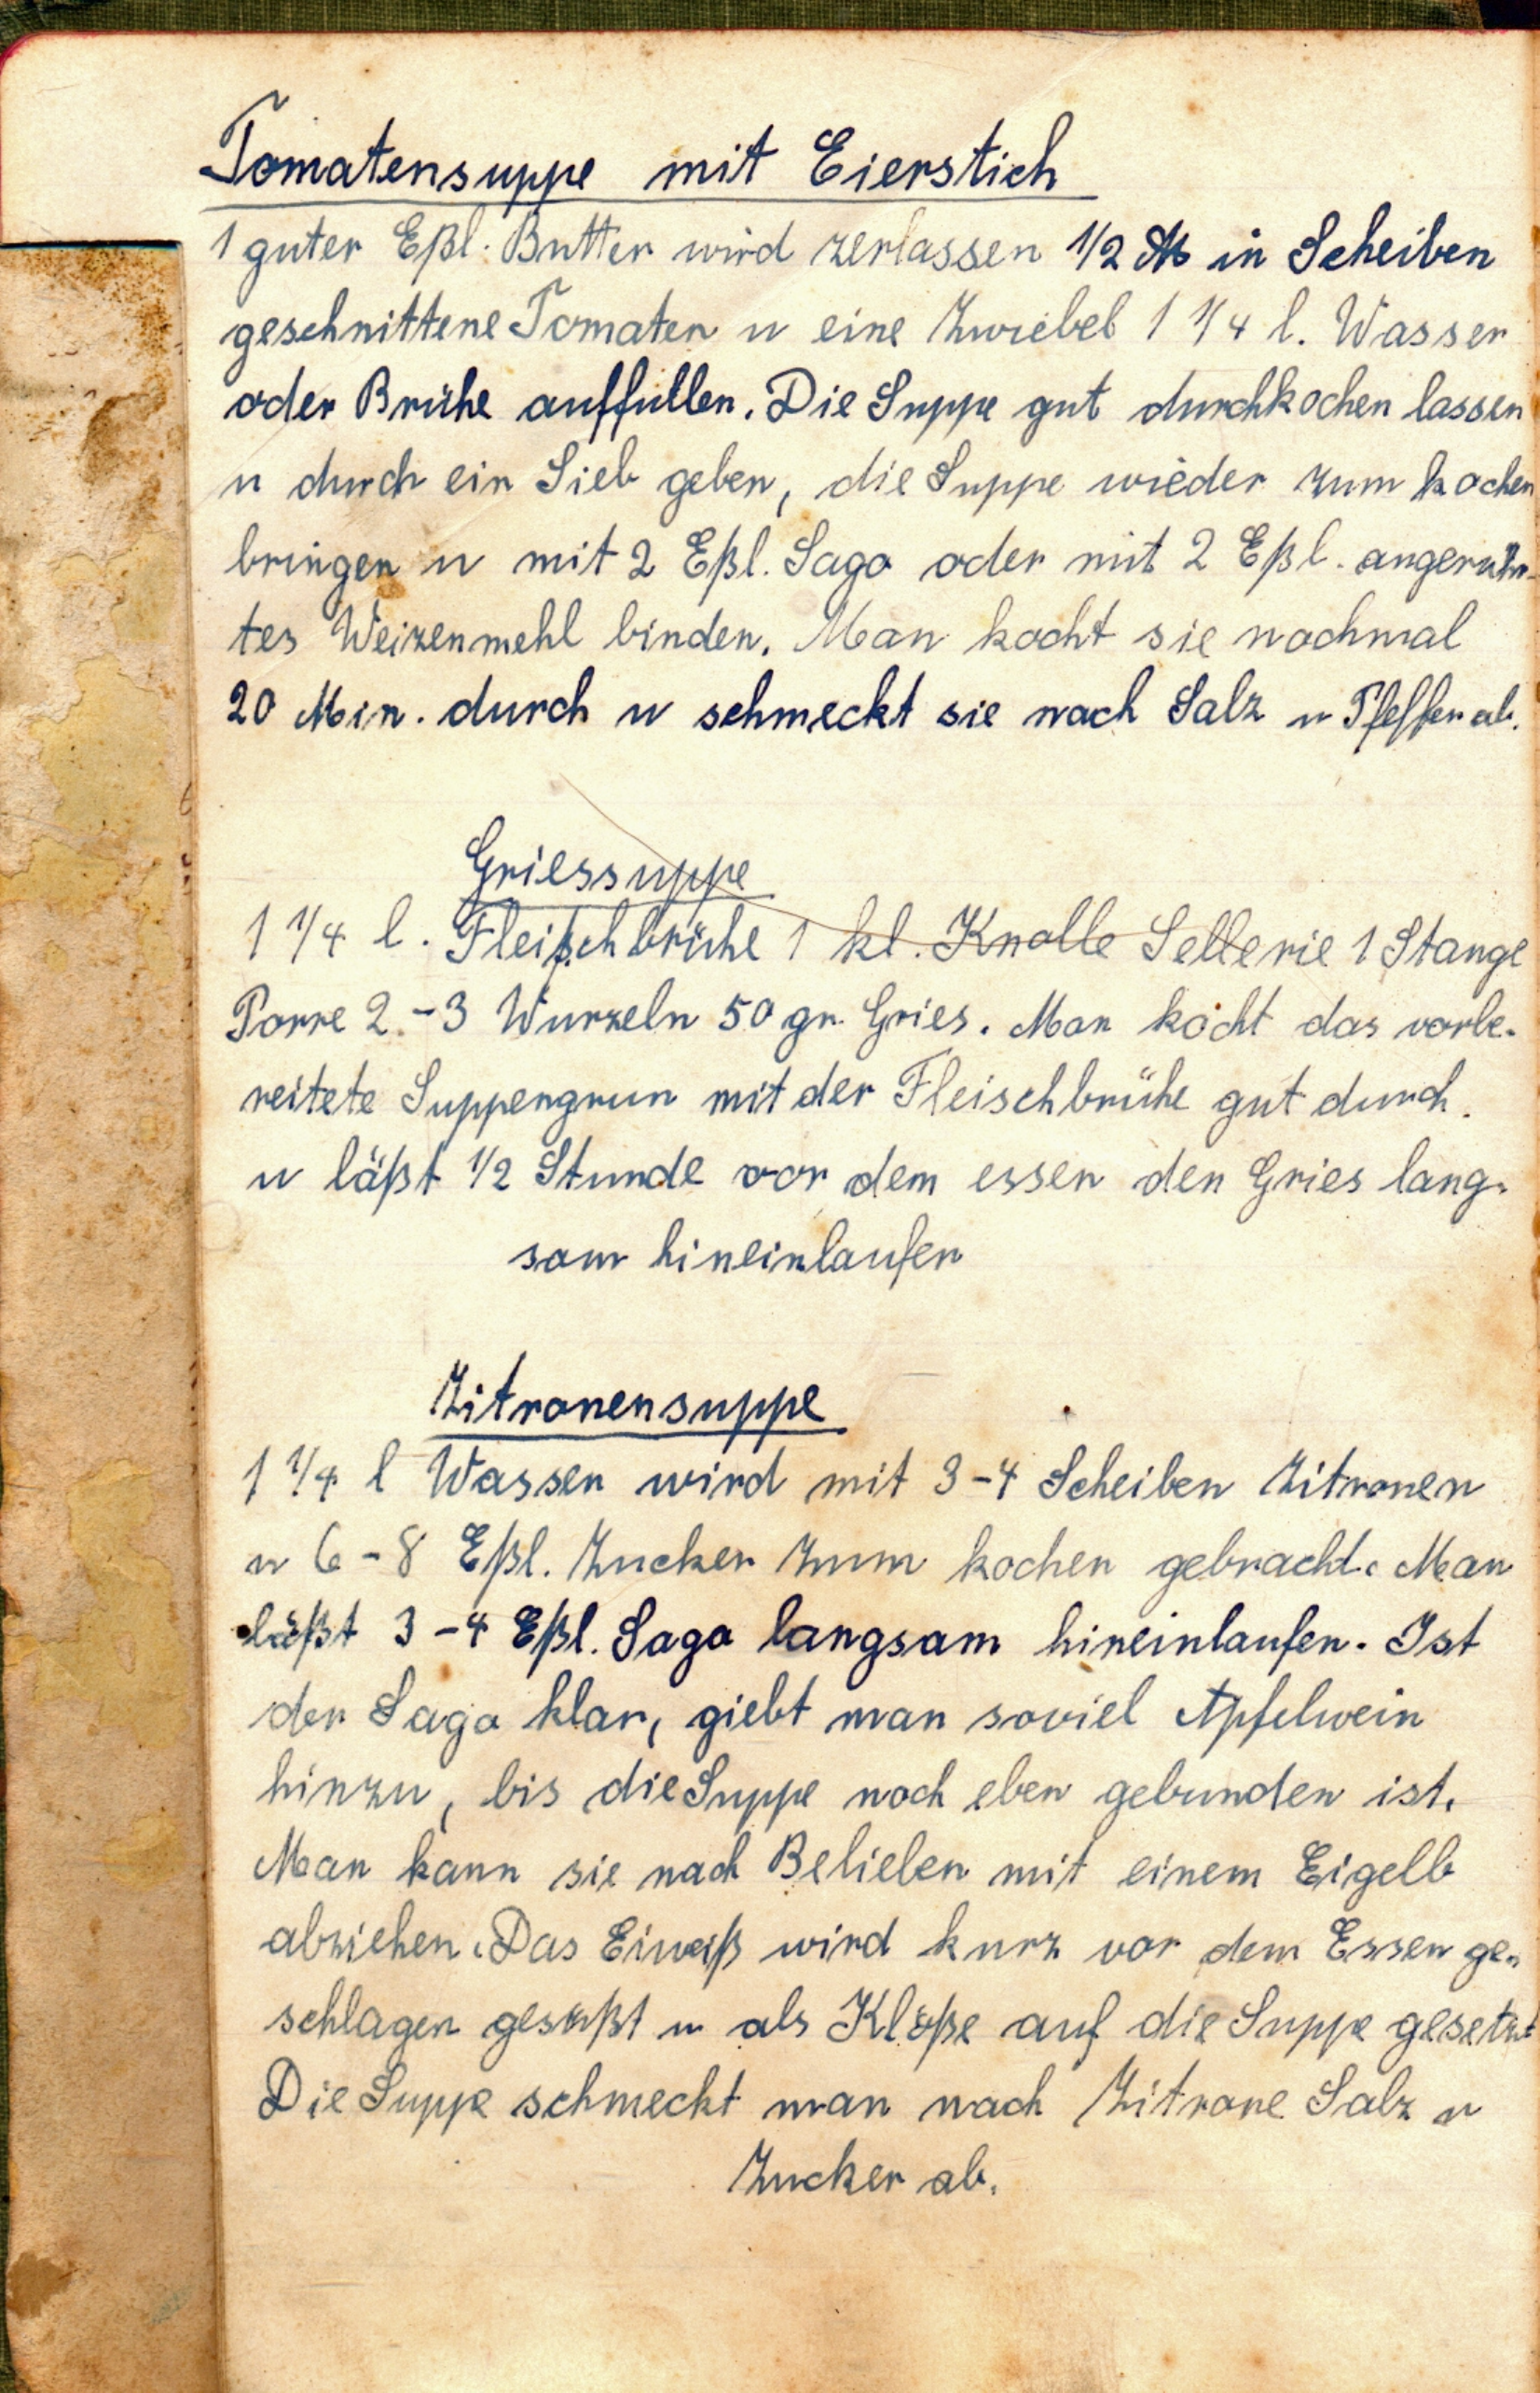 Tomatensuppe mit Eierstich
1 guter Eßl. Butter wird zerlassen 1/2 ℔ in Scheiben
geschnittene Tomaten u eine Zwiebel 1 1/4 l. Wasser
oder Brühe auffüllen. Die Suppe gut durchkochen lassen
u durch ein Sieb geben, die Suppe wieder zum kochen
bringen u mit 2 Eßl. Sago oder mit 2 Eßl. angerühr-
tes Weizenmehl binden. Man kocht sie nochmal
20 Min. durch u schmeckt sie nach Salz u Pfeffer ab.
Griessuppe
1 1/4 l. Fleischbrühe 1 kl. Knolle Sellerie 1 Stange
Porre 2-3 Wurzeln 50 gr. Gries. Man kocht das vorbe-
reitete Suppengrun mit der Fleischbrühe gut durch.
u läßt 1/2 Stunde vor dem essen den Gries lang-
sam hineinlaufen
Zitronensuppe
1 1/4 l Wasser wird mit 3-4 Scheiben Zitronen
u 6-8 Eßl. Zucker zum kochen gebracht. Man
läßt 3-4 Eßl. Sago langsam hineinlaufen. Ist
der Sago klar, giebt man soviel Apfelwein
hinzu, bis die Suppe noch eben gebunden ist.
Man kann sie nach Belieben mit einem Eigelb
abziehen. Das Eiweiß wird kurz vor dem Essen ge-
schlagen gesüßt u als Klöße auf die Suppe gesetzt
Die Suppe schmeckt man nach Zitrone Salz u
Zucker ab.